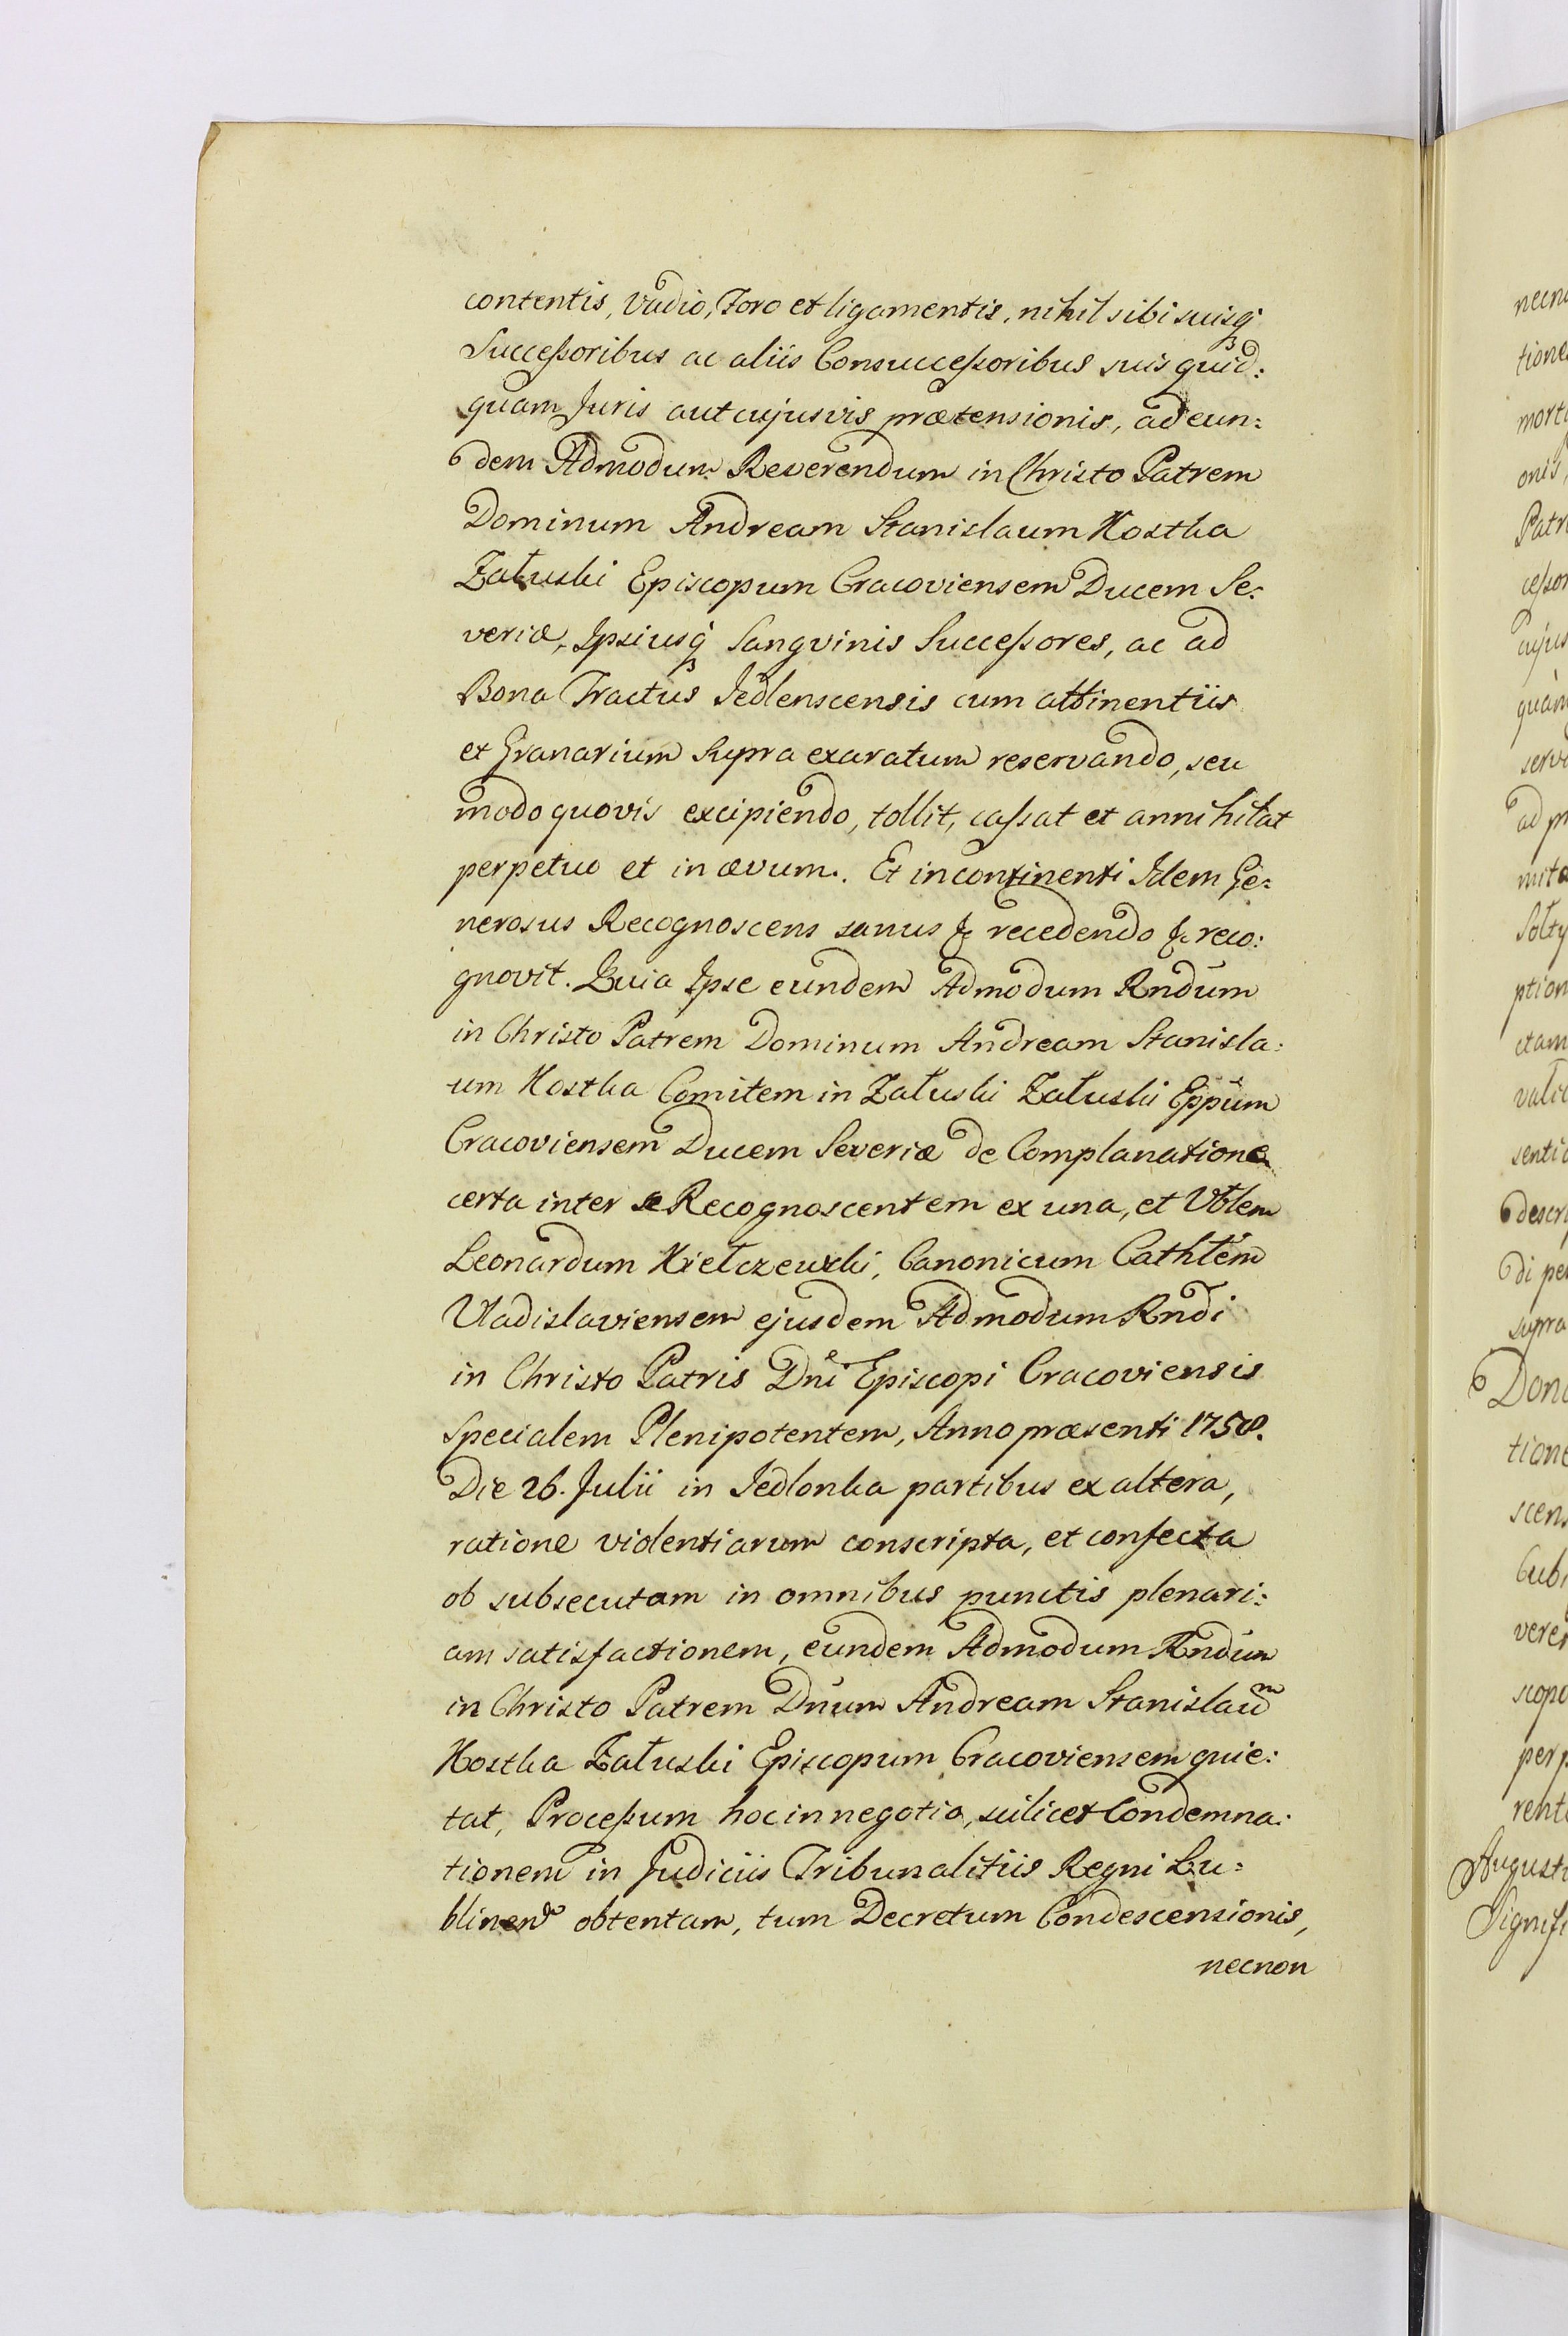 contentis, Vadio, Foro et ligamentis, nihil sibi suisq́ꝫ
Succeſsoribus ac aliis Consucceſsoribus suis quid:
quam Juris aut cujusvis prætensionis, ad eun:
dem Admodum Reverendum in Christo Patrem
Dominum Andream Stanislaum Kostka
Załuski Episcopum Cracoviensem Ducem Se:
veriæ, Ipsiusq́ꝫ Sangvinis Succeſsores, ac ad
Bona Tractus Jedlenscensis cum attinentiis
et Granarium supra exaratum reservando, seu
modo quovis excipiendo, tollit, caſsat et annihilat
perpetuo et in ævum. Et incontinenti Idem Ge:
nerosus Recognoscens sanus &c recedendo &c reco:
gnovit. Quia Ipse eundem Admodum Rndum
in Christo Patrem Dominum Andream Stanisla:
um Kostka Comitem in Załuski Załuski Eppum
Cracoviensem Ducem Severiæ de Complanatione
certa inter se Recognoscentem ex una, et Vblem
Leonardum Kiełczewski, Canonicum Cathlem
Vladislaviensem ejusdem Admodum Rndi
in Christo Patris Dni Episcopi Cracoviensis
Specialem Plenipotentem, Anno præsenti 1758.
Die 26. Julii in Jedlonka partibus ex altera,
ratione violentiarum conscripta, et confecta
ob subsecutam in omnibus punctis plenari:
am satisfactionem, eundem Admodum Rndum
in Christo Patrem Dnum Andream Stanislaum
Kostka Załuski Episcopum Cracoviensem quie:
tat, Proceſsum hoc in negotio, scilicet Condemna:
tionem in Judiciis Tribunalitiis Regni Lu:
blinen̄ obtentam, tum Decretum Condescensionis,
necnon